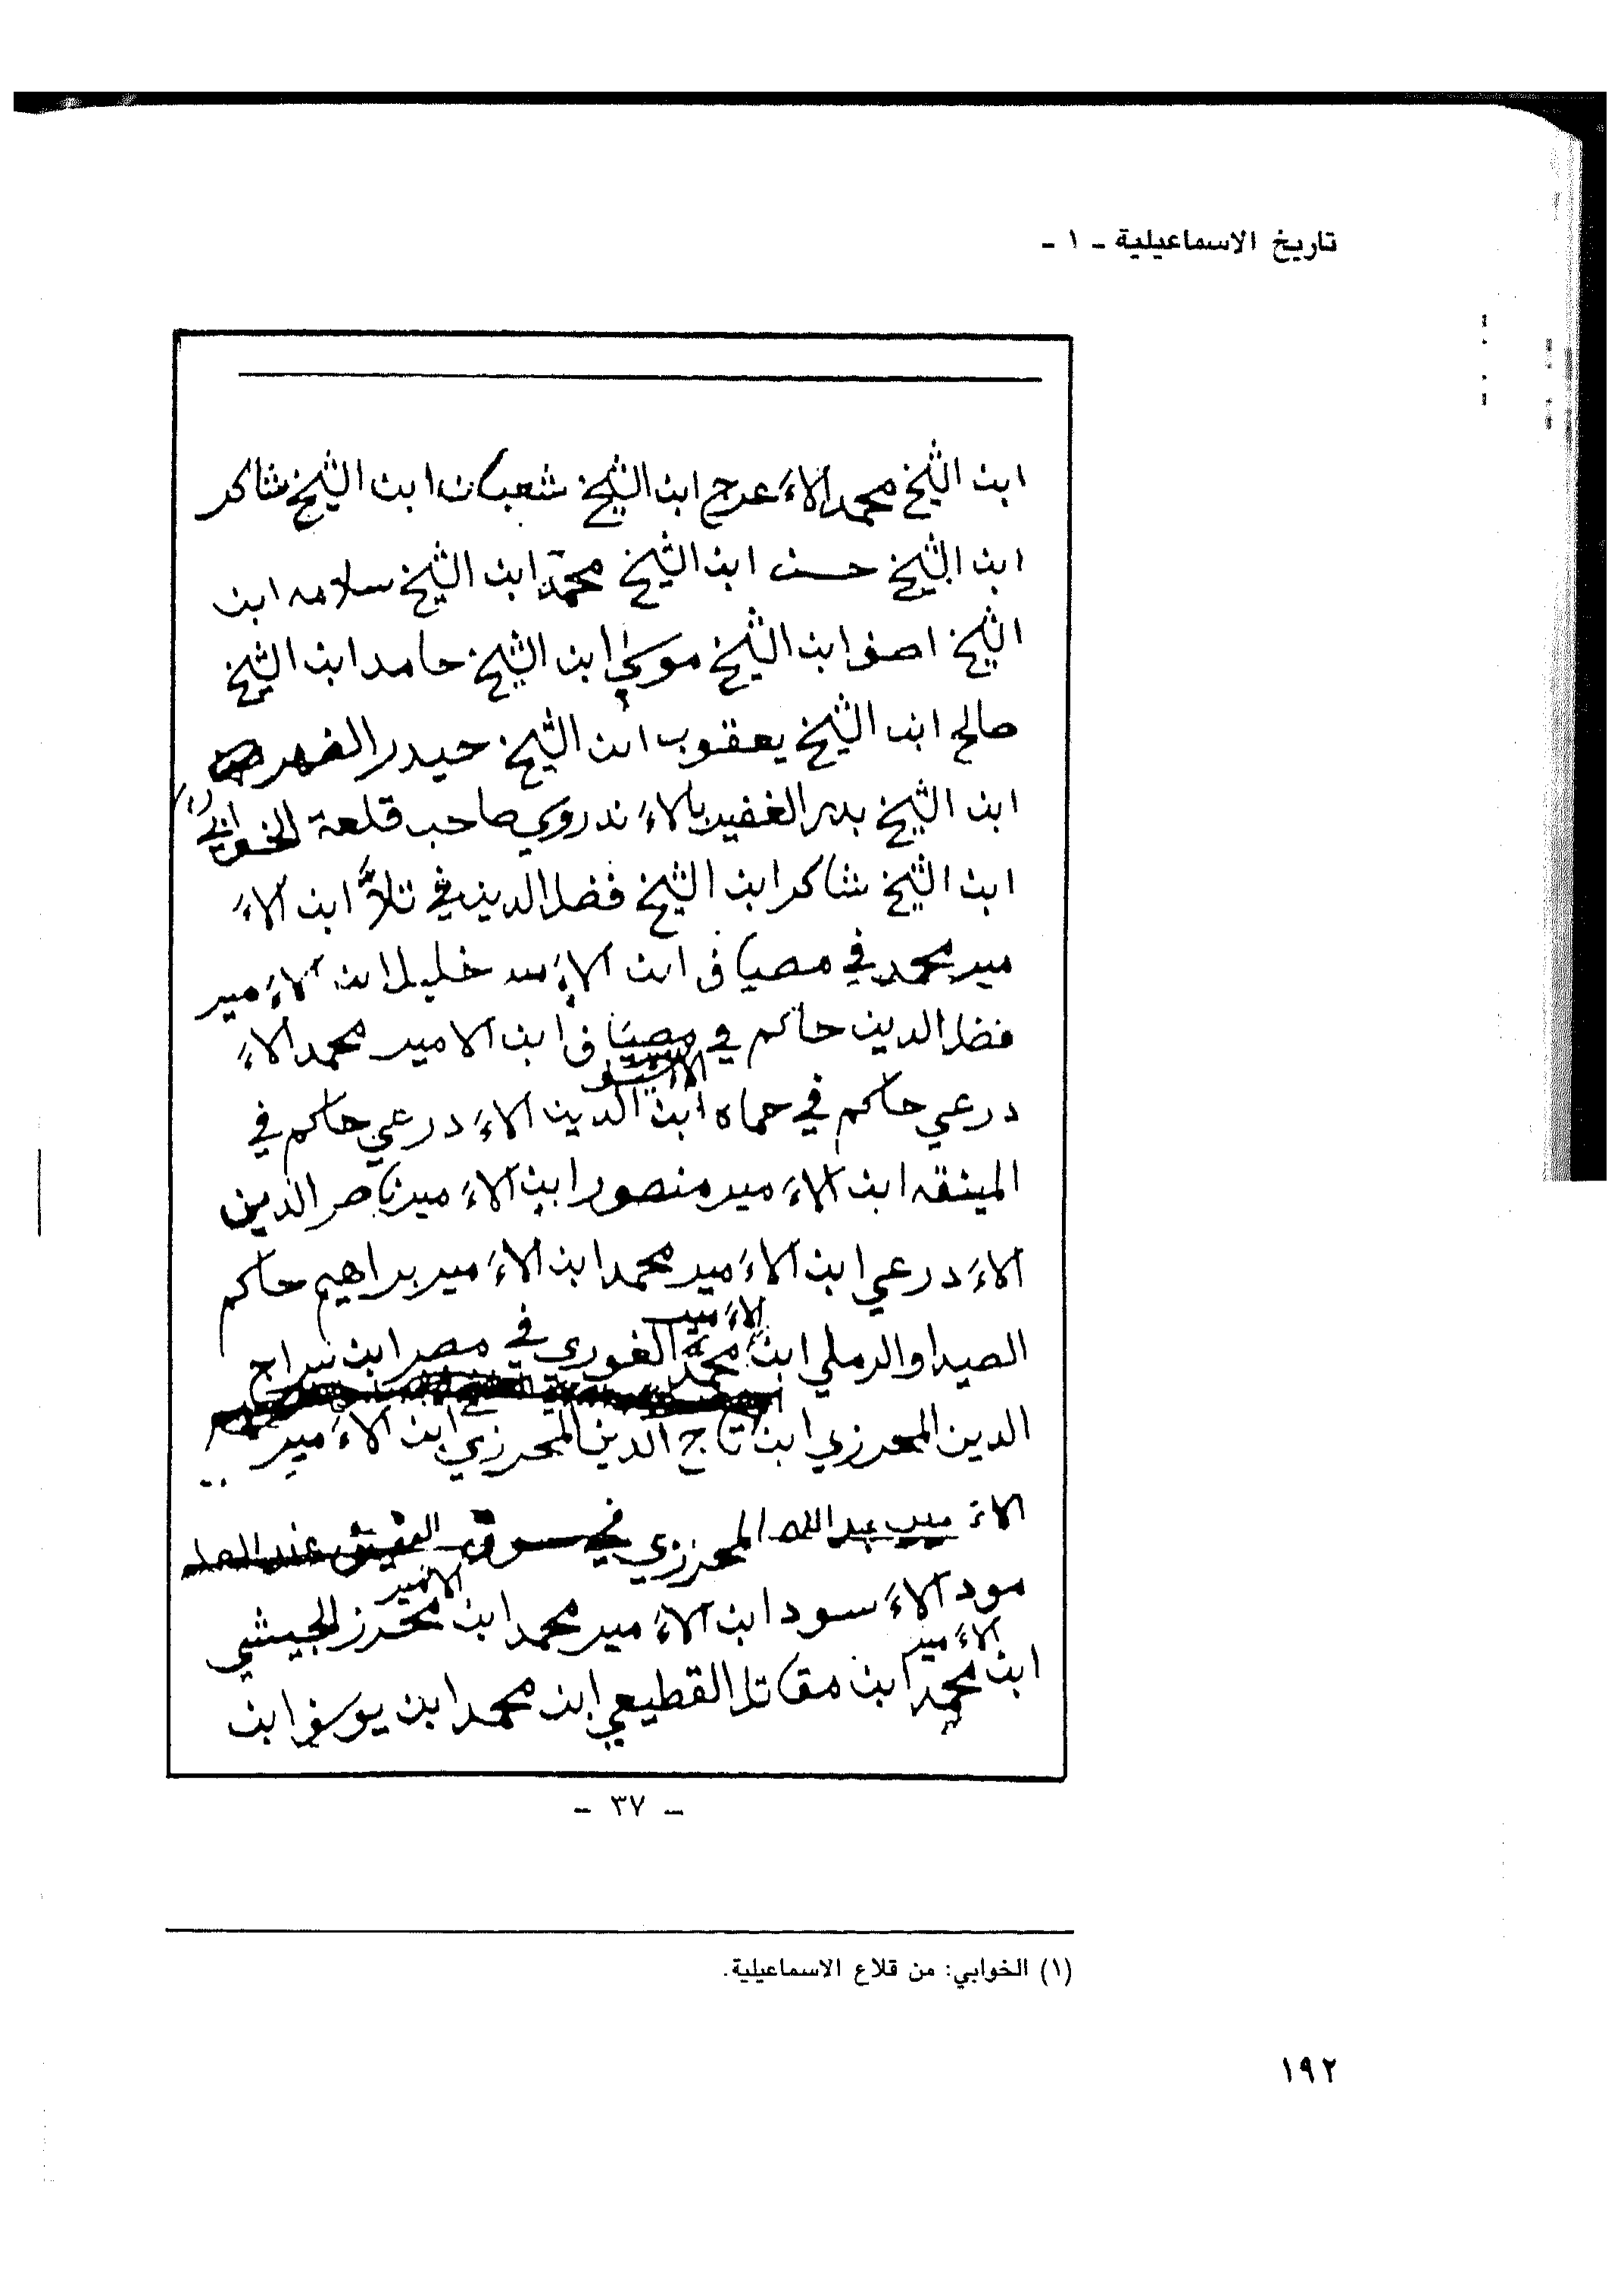 تاريخ الاسماعيلية - ١ -
ابن الشيخ محمد الاءَعرج ابن الشيخ شعبان ابن الشيخ شاكر
ابن الشيخ حسن ابن الشيخ محمّد ابن الشيخ سلامه ابن
الشيخ اصف ابن الشيخ موسى ابن الشيخ حامد ابن الشيخ
صالح ابن الشيخ يعقوب ابن الشيخ حيدر
ابن الشيخ بدر الغفير بالاءَندروي صاحب قلعة الخوابي (١)
ابن الشيخ شاكر ابن الشيخ فضل الدين في تلاّ ابن الاءَ
مير محمد في مصياف ابن خليل ابن الاءَمير
فضل الدين حاكم في مصياف ابن الامير محمد الاءَ
درعي حاكم في حماه ابن الدين الاءَدرعي حاكم في
المينقه ابن الاءَمير منصور ابن الاءَمير ناصر الدين
الاءَدرعي ابن الاءَمير محمد ابن الاءَمير براهيم حاكم
الاءَمير
الصيدا والرملي ابن محمّد الغوري في مصر ابن سراج
الدين المحرزي ابن تاج الدين المحرزي ابن الاءَمير
الاءَمير عبد الله المحرزي في سوق
الامير
مود الاءَسود ابن الاءَمير محمد ابن محرز الجيشي
الاءَمير
ابن محمد ابن مقاتل القطيعي ابن محمد ابن يوسف ابن
- ٣٧ -
(١) الخوابي: من قلاع الاسماعيلية.
١٩٢